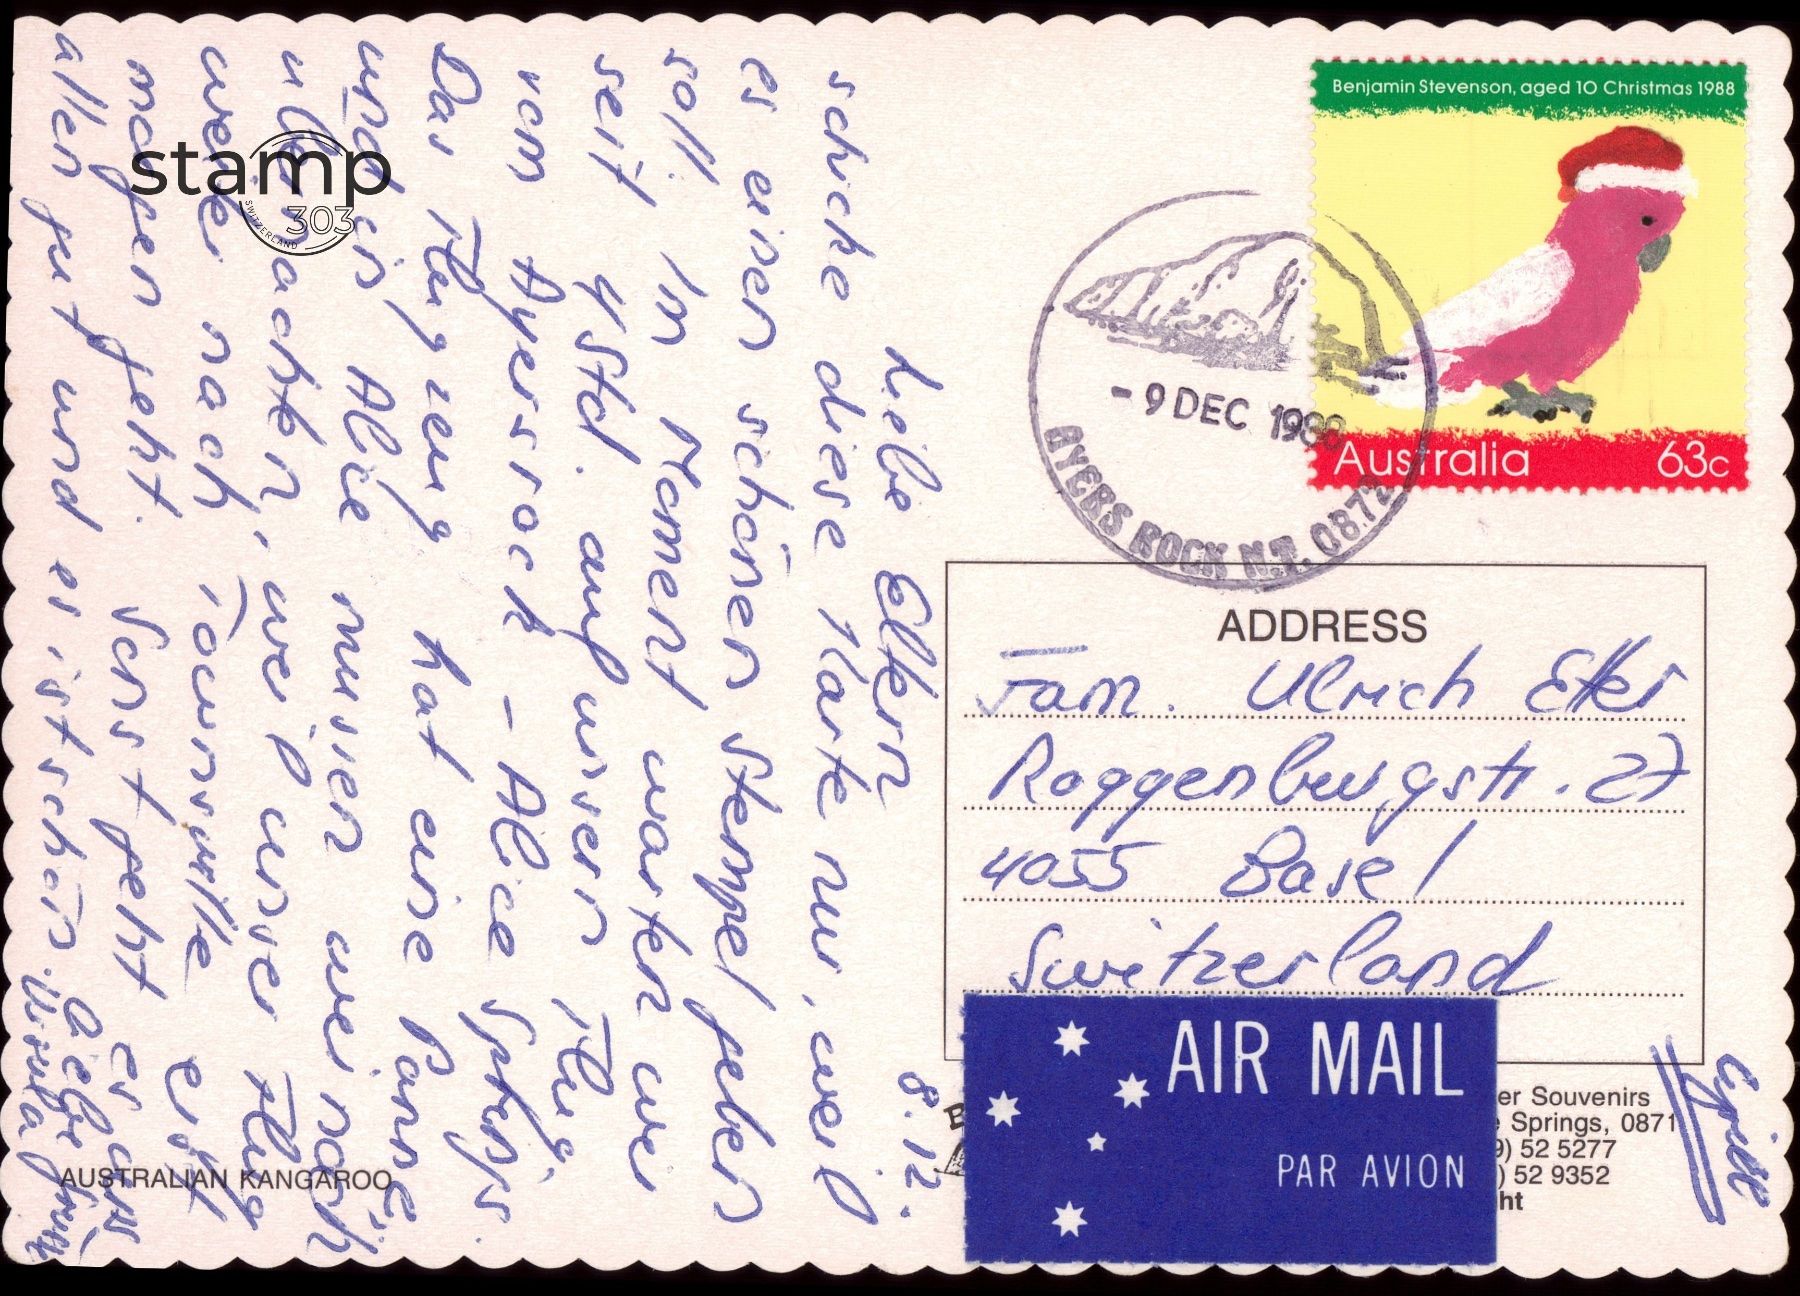 Benjamin Stevenson, aged 10 Christmas 1988
Australia 63c
- 9 DEC 1988
AYERS ROCK N.T. 0872
ADDRESS
Fam. Ulrich
Roggenburgstr. 27
4055 Basel
Switzerland
AIR MAIL
PAR AVION
er Souvenirs
e Springs, 0871
9) 52 5277
) 52 9352
ht
AUSTRALIAN KANGAROO
stamp
303
SWITZERLAND
8.12.
Liebe Eltern
schicke diese Karte nur, weil
es einen schönen Stempel geben
soll. Im Moment warten wir
seit 4 Std. auf unsern Flug
vom Ayersrock - Alice Springs.
Das Flugzeug hat eine Panne
und in Alice müssen wir noch
übernachten, weil unser Flug
weiter nach Tounsville erst
morgen geht. Sonst geht es uns
allen gut und es ist schön. Liebe Grüsse